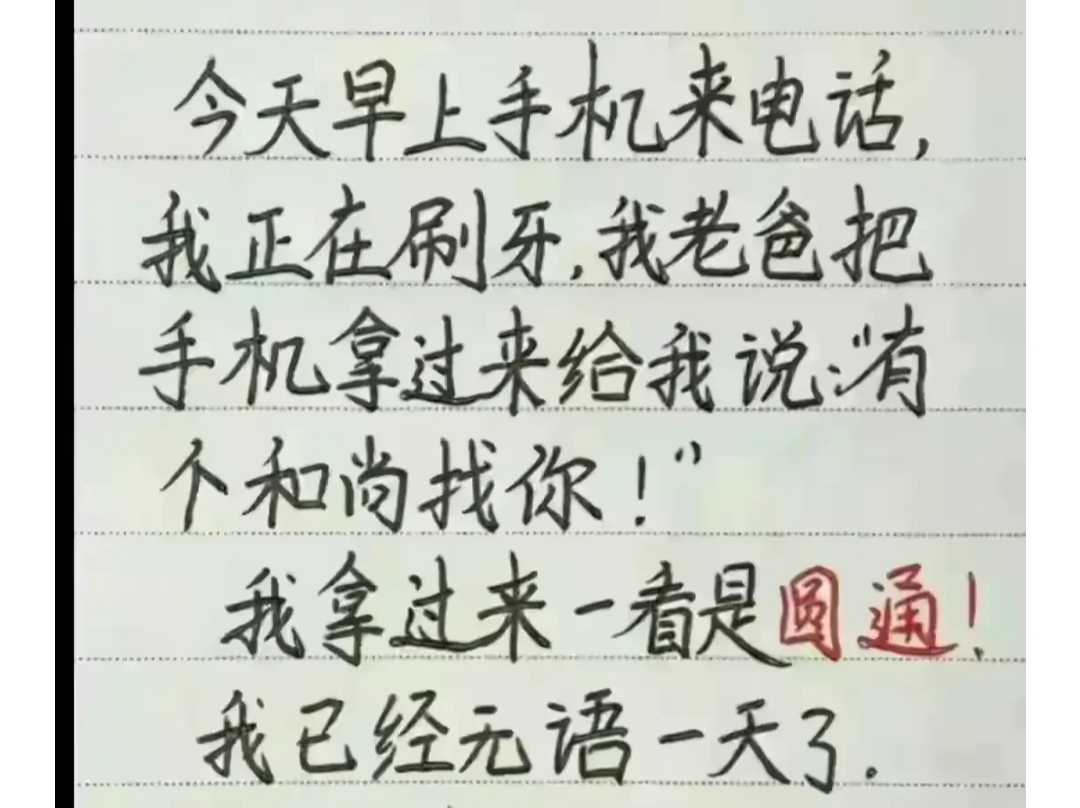 今天早上手机来电话,
我正在刷牙,我老爸把
手机拿过来给我说:"有
个和尚找你!"
我拿过来一看是圆通!
我已经无语一天了.